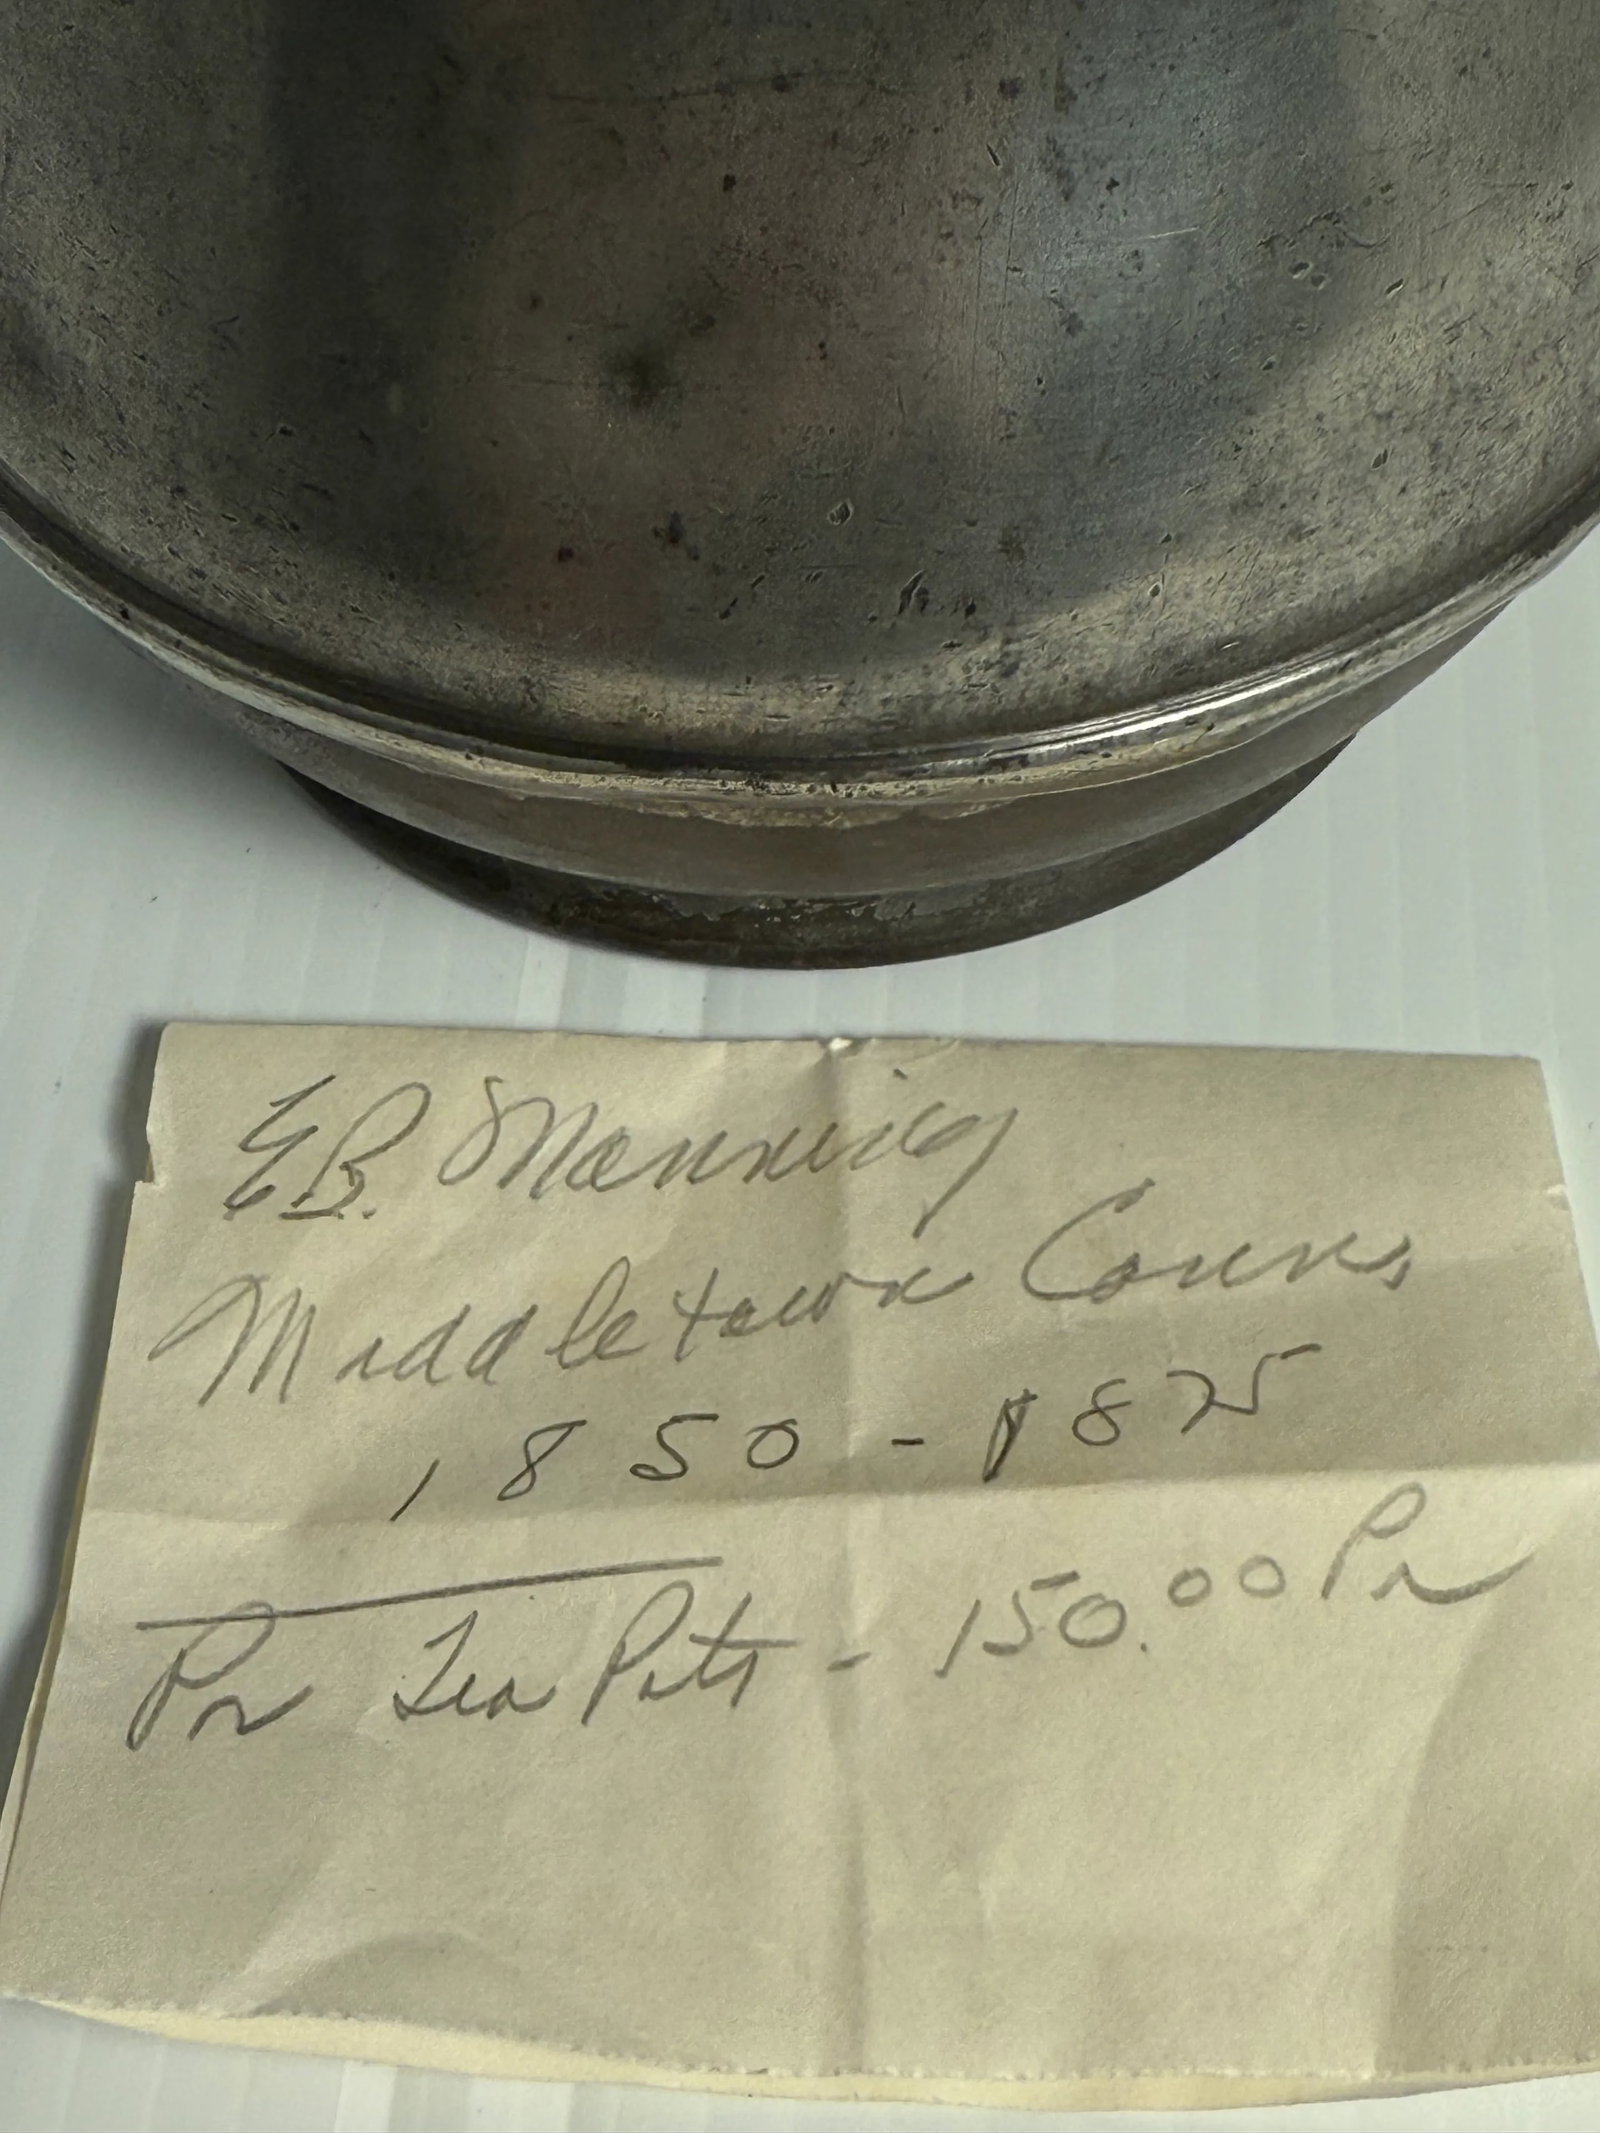 E.B. Manning
Middletown Conn.
1850 - 1875
Pr Tea Pots - 150.00 Pr